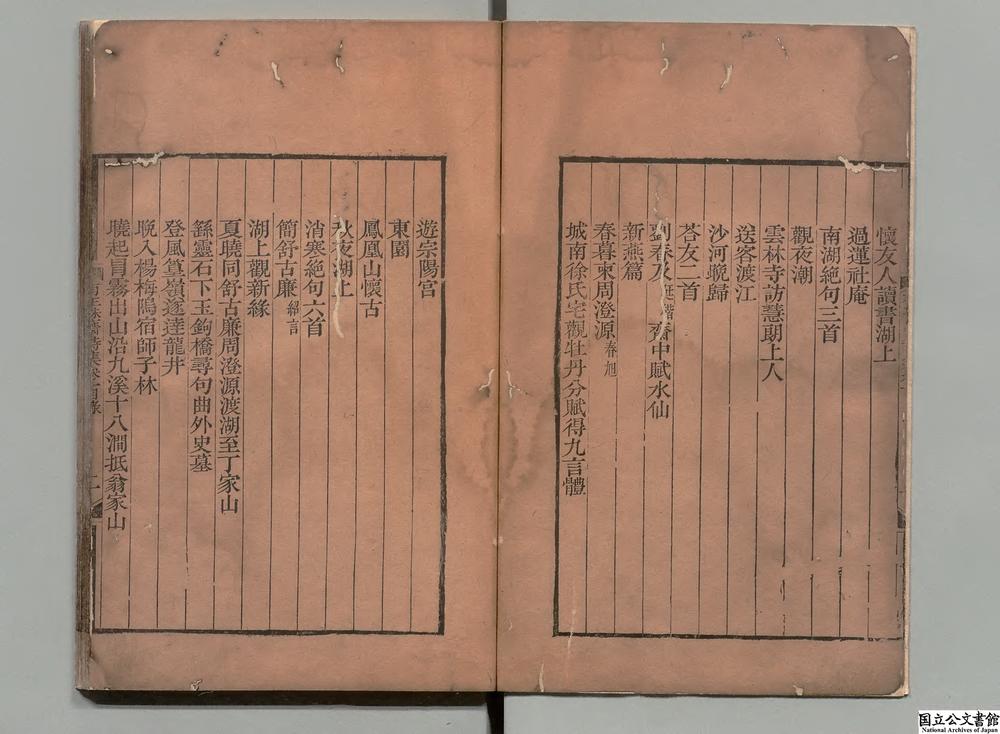 懷友人讀書湖上
過蓮社庵
南湖絕句三首
觀夜潮
雲林寺訪慧朗上人
送客渡江
沙河晩歸
荅友二首
劉春及廷諧齋中賦水仙
新燕篇
春暮柬周澄源春旭
城南徐氏宅觀牡丹分賦得九言體
遊宗陽宮
東園
鳳凰山懷古
秋夜湖上
消寒絕句六首
簡舒古廉紹言
湖上觀新綠
夏曉同舒古廉周澄源渡湖至丁家山
繇靈石下玉鉤橋尋句曲外史墓
登風篁嶺遂達龍井
晩入楊梅隖宿師子林
曉起冒霧出山沿九溪十八澗抵翁家山
国立公文書館
National Archives of Japan